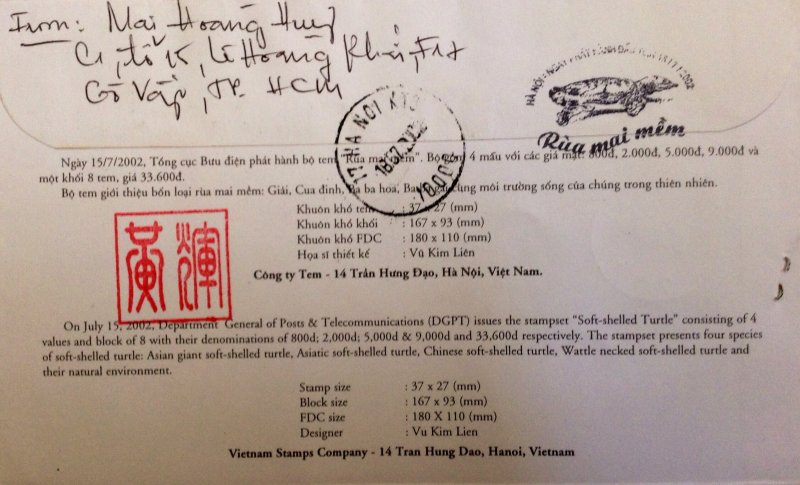 From: Mai Hoàng Huy
C1, tổ 15, Lê Hoàng Phái, F17
Gò Vấp, TP. HCM
HÀ NỘI - NGÀY PHÁT HÀNH ĐẦU TIÊN 15/7/2002
Rùa mai mềm
HA NOI
Ngày 15/7/2002, Tổng cục Bưu điện phát hành bộ tem "Rùa mai mềm". Bộ gồm 4 mẫu với các giá mặt: 800đ, 2.000đ, 5.000đ, 9.000đ và
một khối 8 tem, giá 33.600đ.
Bộ tem giới thiệu bốn loại rùa mai mềm: Giải, Cua đinh, Ba ba hoa, Ba ba gai cùng môi trường sống của chúng trong thiên nhiên.
Khuôn khổ tem : 37 x 27 (mm)
Khuôn khổ khối : 167 x 93 (mm)
Khuôn khổ FDC : 180 x 110 (mm)
Họa sĩ thiết kế : Vũ Kim Liên
Công ty Tem - 14 Trần Hưng Đạo, Hà Nội, Việt Nam.
黃輝
On July 15, 2002, Department General of Posts & Telecommunications (DGPT) issues the stampset "Soft-shelled Turtle" consisting of 4
values and block of 8 with their denominations of 800d; 2,000d; 5,000d & 9,000d and 33,600d respectively. The stampset presents four species
of soft-shelled turtle: Asian giant soft-shelled turtle, Asiatic soft-shelled turtle, Chinese soft-shelled turtle, Wattle necked soft-shelled turtle and
their natural environment.
Stamp size : 37 x 27 (mm)
Block size : 167 x 93 (mm)
FDC size : 180 X 110 (mm)
Designer : Vu Kim Lien
Vietnam Stamps Company - 14 Tran Hung Dao, Hanoi, Vietnam